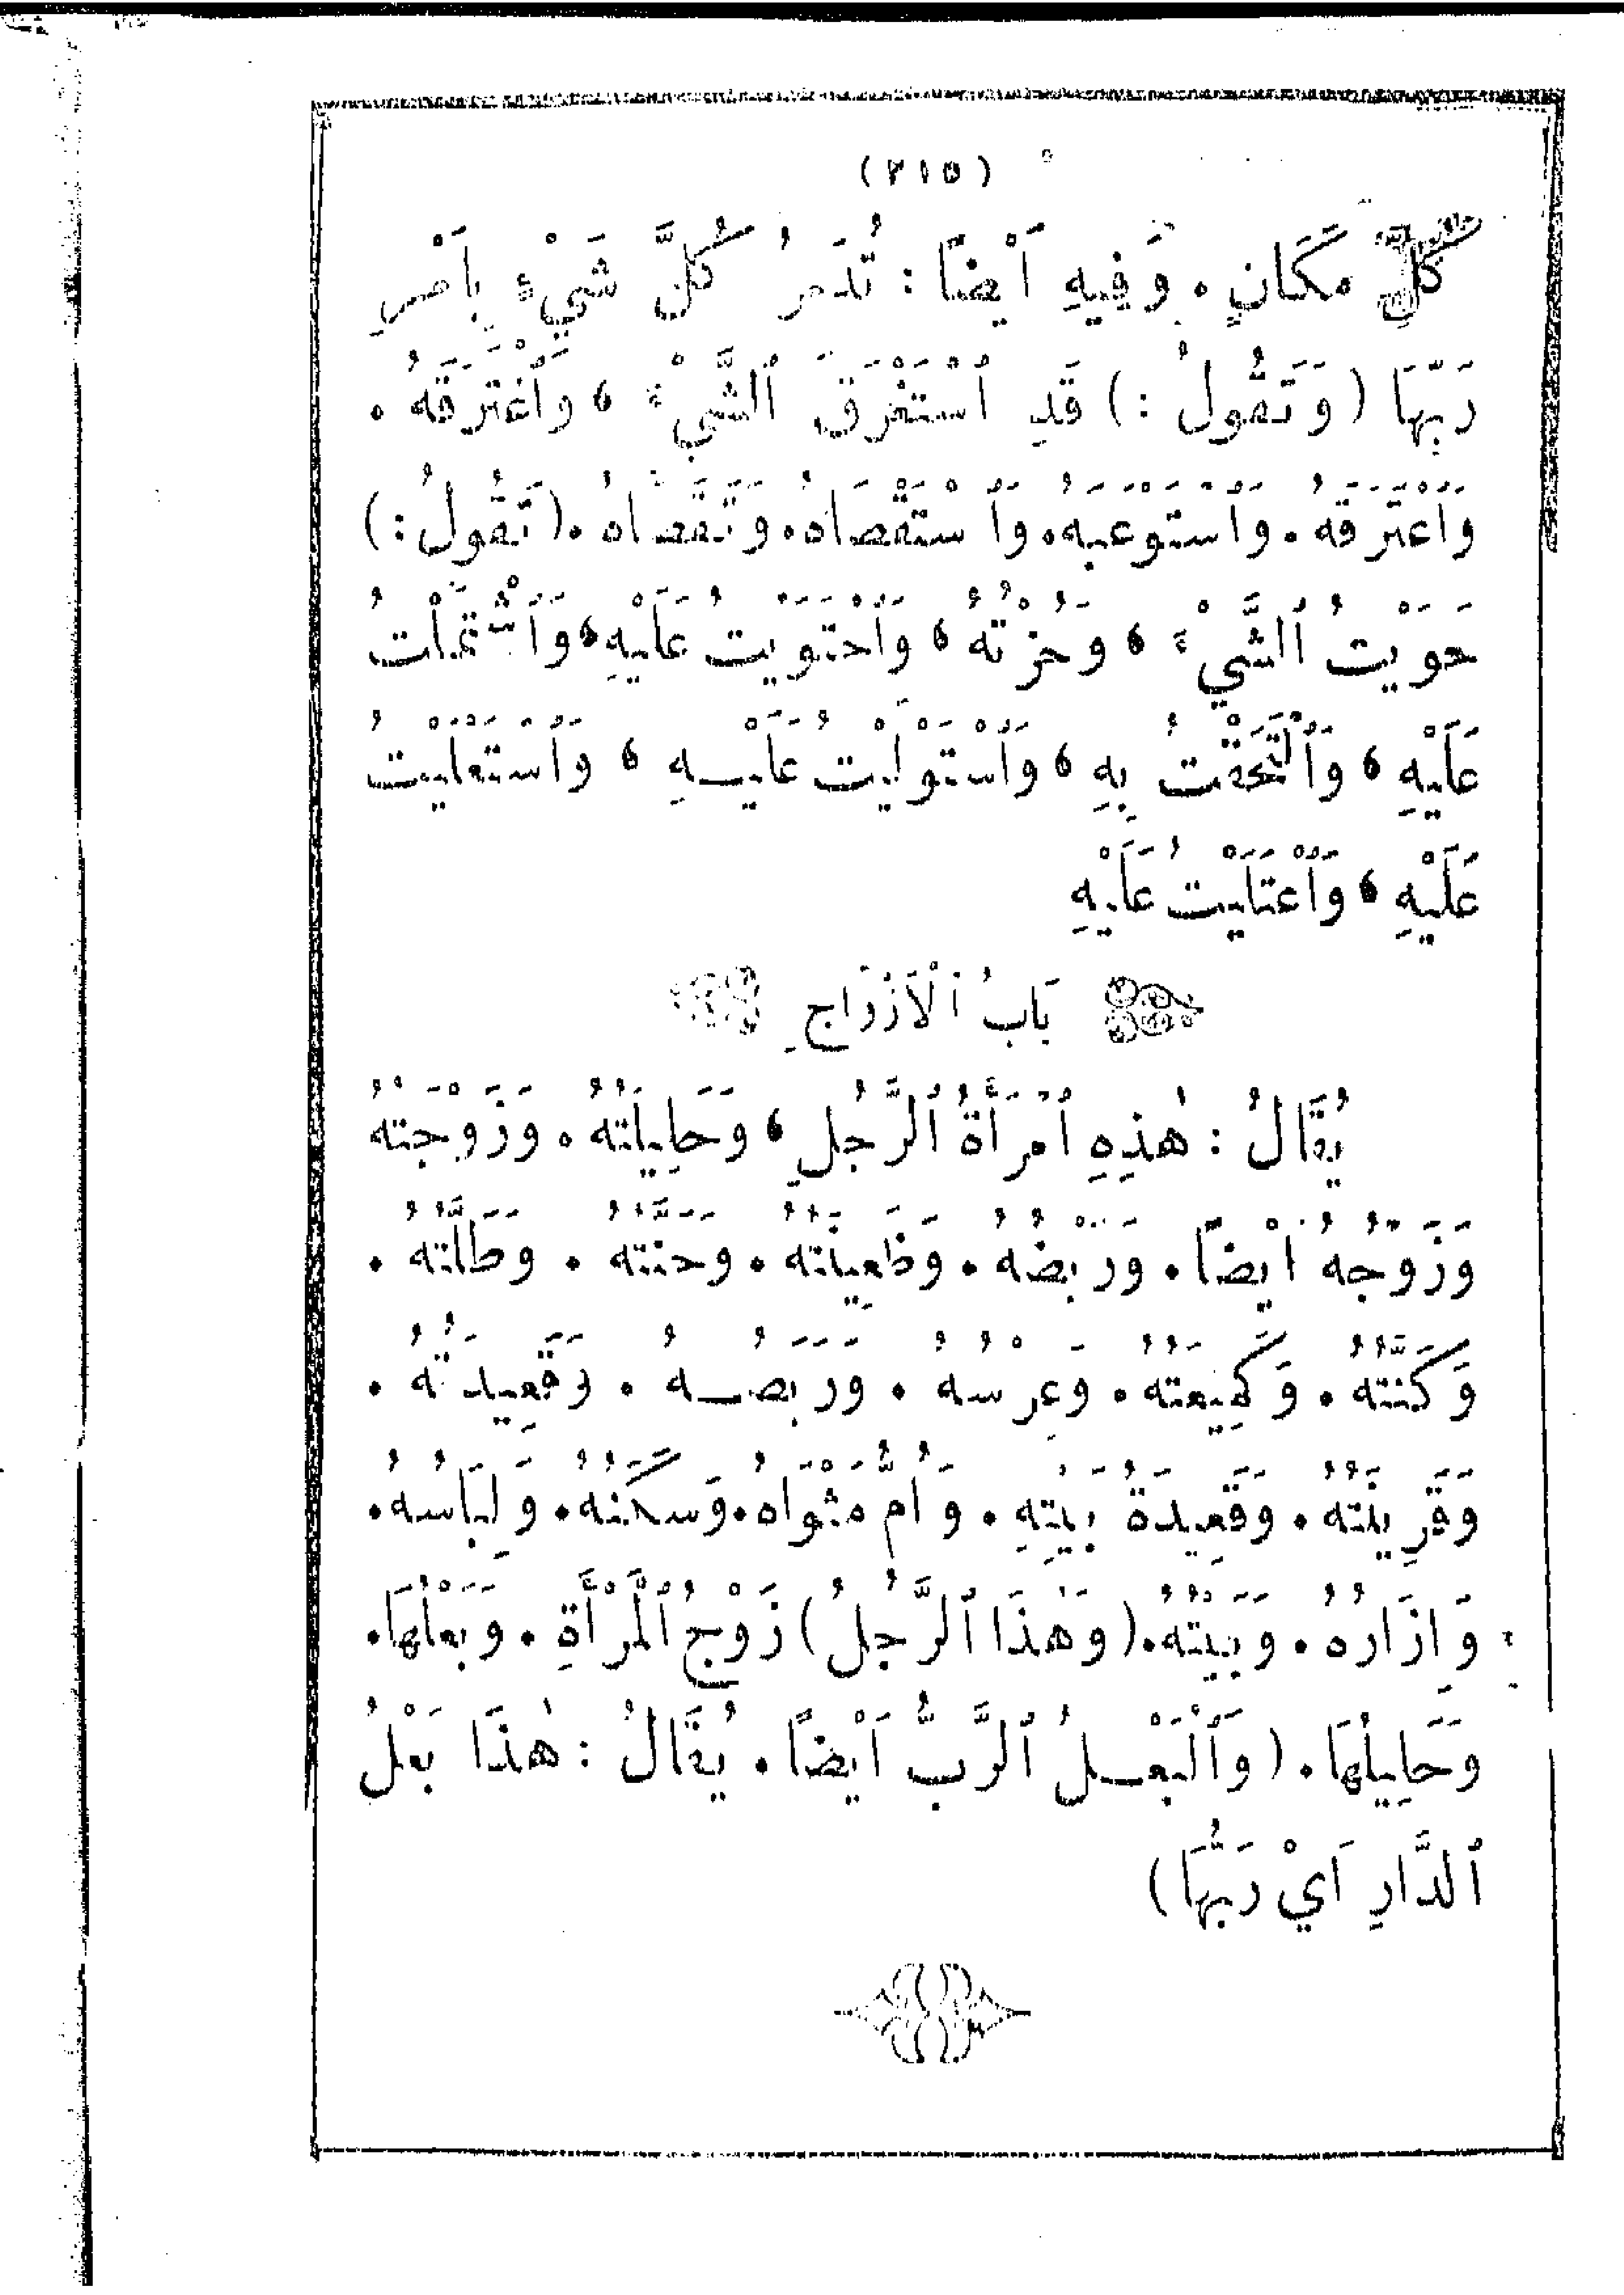 (٢١٥)
كُلِّ مَكَانٍ . وَفِيهِ أَيْضًا : تُدَمِرُ كُلَّ شَيْءٍ بِأَمْرِ
رَبِّهَا (وَتَقُولُ :) قَدِ ٱسْتَغْرَقَ ٱلشَّيْءَ ، وَٱغْتَرَقَهُ .
وَٱعْتَرَقَهُ . وَٱسْتَوْعَبَهُ . وَٱسْتَقْصَاهُ . وَتَقَصَّاهُ . (تَقُولُ :)
حَوَيْتُ ٱلشَّيْءَ ، وَحُزْتُهُ ، وَٱحْتَوَيْتُ عَلَيْهِ ، وَٱشْتَمَلْتُ
عَلَيْهِ ، وَٱلْتَحَفْتُ بِهِ ، وَٱسْتَوْلَيْتُ عَلَيْهِ ، وَٱسْتَعْلَيْتُ
عَلَيْهِ ، وَٱعْتَلَيْتُ عَلَيْهِ
بَابُ ٱلْأَزْوَاجِ
يُقَالُ : هٰذِهِ ٱمْرَأَةُ ٱلرَّجُلِ ، وَحَلِيلَتُهُ . وَزَوْجَتُهُ
وَزَوْجُهُ أَيْضًا . وَرَبْضُهُ . وَظَعِينَتُهُ . وَحَنَّتُهُ . وَطَلَّتُهُ .
وَكَنَّتُهُ . وَكَمِيعَتُهُ . وَعِرْسُهُ . وَرَبَضُهُ . وَقَعِيدَتُهُ .
وَقَرِينَتُهُ . وَقَعِيدَةُ بَيْتِهِ . وَأُمُّ مَثْوَاهُ . وَسَكَنُهُ . وَلِبَاسُهُ .
وَإِزَارُهُ . وَبَيْتُهُ . (وَهٰذَا ٱلرَّجُلُ) زَوْجُ ٱلْمَرْأَةِ . وَبَعْلُهَا .
وَحَلِيلُهَا . (وَٱلْبَعْلُ ٱلرَّبُّ أَيْضًا . يُقَالُ : هٰذَا بَعْلُ
ٱلدَّارِ أَيْ رَبُّهَا)